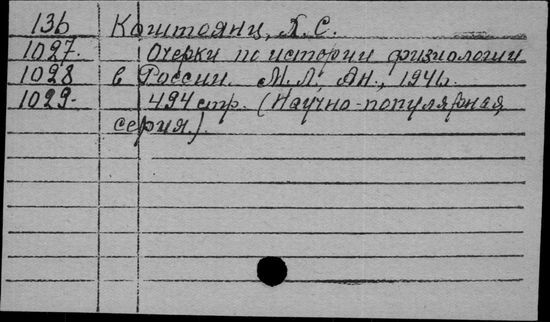 136 Коштоянц, Х. С.
1027. Очерки по истории физиологии
1028 в России. М.Л, Ан., 1946.
1029. 494 стр. (Научно-популярная
серия.).